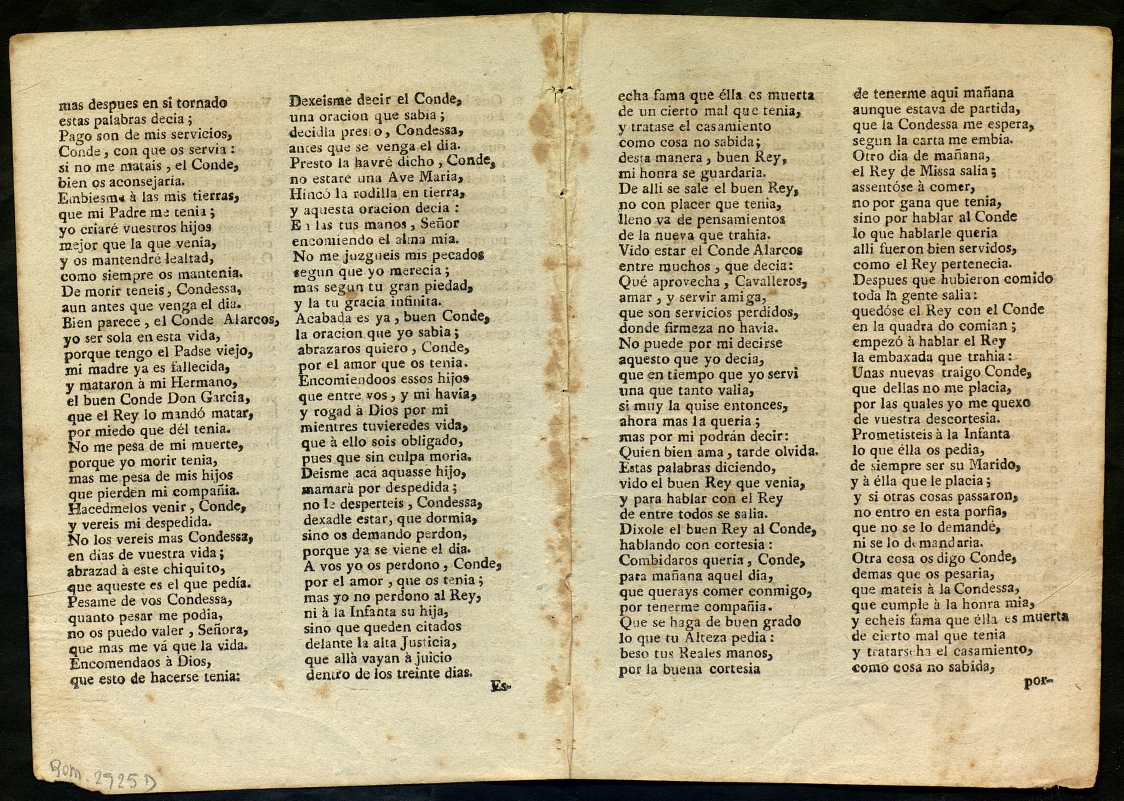 mas despues en si tornado
estas palabras decia;
Pago son de mis servicios,
Conde, con que os servia:
si no me matais, el Conde,
bien os aconsejaria.
Embiesme à las mis tierras,
que mi Padre me tenia;
yo criaré vuestros hijos
mejor que la que venia,
y os mantendré lealtad,
como siempre os mantenia.
De morir teneis, Condessa,
aun antes que venga el dia.
Bien parece, el Conde Alarcos,
yo ser sola en esta vida,
porque tengo el Padse viejo,
mi madre ya es fallecida,
y mataron à mi Hermano,
el buen Conde Don Garcia,
que el Rey lo mandó matar,
por miedo que dél tenia.
No me pesa de mi muerte,
porque yo morir tenia,
mas me pesa de mis hijos
que pierden mi compañia.
Hacedmelos venir, Conde,
y vereis mi despedida.
No los vereis mas Condessa,
en dias de vuestra vida;
abrazad à este chiquito,
que aqueste es el que pedía.
Pesame de vos Condessa,
quanto pesar me podia,
no os puedo valer, Señora,
que mas me vá que la vida.
Encomendaos à Dios,
que esto de hacerse tenia:
Dexeisme decir el Conde,
una oracion que sabia;
decidla presto, Condessa,
antes que se venga el dia.
Presto la havré dicho, Conde,
no estaré una Ave Maria,
Hincó la rodilla en tierra,
y aquesta oracion decia:
En las tus manos, Señor
encomiendo el alma mia.
No me juzgueis mis pecados
segun que yo merecia;
mas segun tu gran piedad,
y la tu gracia infinita.
Acabada es ya, buen Conde,
la oracion que yo sabia;
abrazaros quiero, Conde,
por el amor que os tenia.
Encomiendoos essos hijos
que entre vos, y mi havia,
y rogad à Dios por mi
mientres tuvieredes vida,
que à ello sois obligado,
pues que sin culpa moria.
Deisme acà aquasse hijo,
mamarà por despedida;
no le desperteis, Condessa,
dexadle estar, que dormia,
sino os demando perdon,
porque ya se viene el dia.
A vos yo os perdono, Conde,
por el amor, que os tenia;
mas yo no perdono al Rey,
ni à la Infanta su hija,
sino que queden citados
delante la alta Justicia,
que allà vayan à juicio
dentro de los treinte dias.
Es-
echa fama que élla es muerta
de un cierto mal que tenia,
y tratase el casamiento
como cosa no sabida;
desta manera, buen Rey,
mi honra se guardaria.
De alli se sale el buen Rey,
no con placer que tenia,
lleno va de pensamientos
de la nueva que trahia.
Vido estar el Conde Alarcos
entre muchos, que decia:
Qué aprovecha, Cavalleros,
amar, y servir amiga,
que son servicios perdidos,
donde firmeza no havia.
No puede por mi decirse
aquesto que yo decia,
que en tiempo que yo servi
una que tanto valia,
si muy la quise entonces,
ahora mas la queria;
mas por mi podrán decir:
Quien bien ama, tarde olvida.
Estas palabras diciendo,
vido el buen Rey que venia,
y para hablar con el Rey
de entre todos se salia.
Dixole el buen Rey al Conde,
hablando con cortesia:
Combidaros queria, Conde,
para mañana aquel dia,
que querays comer conmigo,
por tenerme compañia.
Que se haga de buen grado
lo que tu Alteza pedia:
beso tus Reales manos,
por la buena cortesia
de tenerme aqui mañana
aunque estava de partida,
que la Condessa me espera,
segun la carta me embia.
Otro dia de mañana,
el Rey de Missa salia;
assentóse à comer,
no por gana que tenia,
sino por hablar al Conde
lo que hablarle queria
alli fueron bien servidos,
como el Rey pertenecia.
Despues que hubieron comido
toda la gente salia:
quedóse el Rey con el Conde
en la quadra do comian;
empezó à hablar el Rey
la embaxada que trahia:
Unas nuevas traigo Conde,
que dellas no me placia,
por las quales yo me quexo
de vuestra descortesia.
Prometisteis à la Infanta
lo que élla os pedia,
de siempre ser su Marido,
y à élla que le placia;
y si otras cosas passaron,
no entro en esta porfia,
que no se lo demandé,
ni se lo demandaria.
Otra cosa os digo Conde,
demas que os pesaria,
que mateis à la Condessa,
que cumple à la honra mia,
y echeis fama que élla es muerta
de cierto mal que tenia
y tratarseha el casamiento,
como cosa no sabida,
por-
Rom. 2925 D